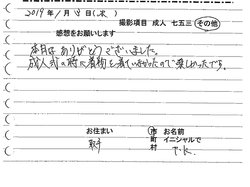 2019年1月8日(木)
撮影項目 成人 七五三 その他
感想をお願いします
本日は ありがとうございました。
成人式の時に着物を着ていなかったので楽しかったです。
お住まい 市町村
お名前 イニシャルで
T.K.